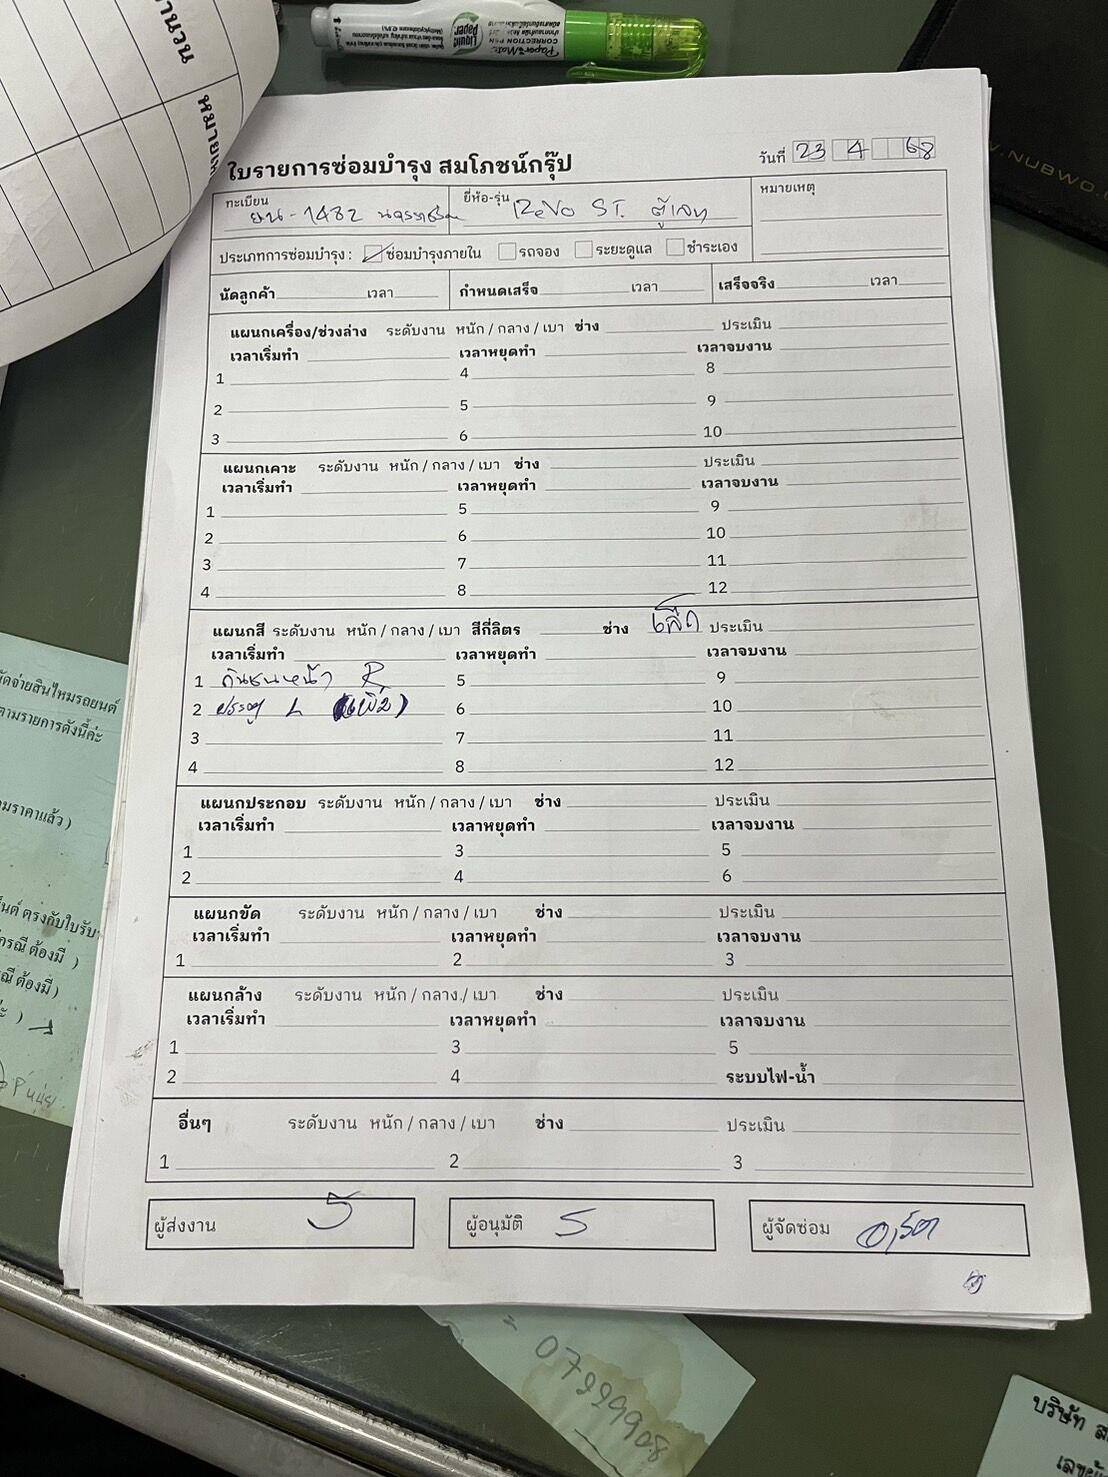 จำนวน
หมายเห
Liquid Paper
Paper Mate
CORRECTION PEN
NUBWO
ใบรายการซ่อมบำรุง สมโภชน์กรุ๊ป
วันที่ 23 4 68
ทะเบียน ยน-1432
ยี่ห้อ-รุ่น Revo ST.
หมายเหตุ
ประเภทการซ่อมบำรุง : ซ่อมบำรุงภายใน รถจอง ระยะดูแล ชำระเอง
นัดลูกค้า เวลา กำหนดเสร็จ เวลา เสร็จจริง เวลา
แผนกเครื่อง/ช่วงล่าง ระดับงาน หนัก / กลาง / เบา ช่าง ประเมิน
เวลาเริ่มทำ เวลาหยุดทำ เวลาจบงาน
1 4 8
2 5 9
3 6 10
แผนกเคาะ ระดับงาน หนัก / กลาง / เบา ช่าง ประเมิน
เวลาเริ่มทำ เวลาหยุดทำ เวลาจบงาน
1 5 9
2 6 10
3 7 11
4 8 12
แผนกสี ระดับงาน หนัก / กลาง / เบา สีกี่ลิตร ช่าง ประเมิน
เวลาเริ่มทำ เวลาหยุดทำ เวลาจบงาน
1 กันชนหน้า R 5 9
2 ประตู L 6 10
3 7 11
4 8 12
แผนกประกอบ ระดับงาน หนัก / กลาง / เบา ช่าง ประเมิน
เวลาเริ่มทำ เวลาหยุดทำ เวลาจบงาน
1 3 5
2 4 6
แผนกขัด ระดับงาน หนัก / กลาง / เบา ช่าง ประเมิน
เวลาเริ่มทำ เวลาหยุดทำ เวลาจบงาน
1 2 3
แผนกล้าง ระดับงาน หนัก / กลาง / เบา ช่าง ประเมิน
เวลาเริ่มทำ เวลาหยุดทำ เวลาจบงาน
1 3 5
2 4 ระบบไฟ-น้ำ
อื่นๆ ระดับงาน หนัก / กลาง / เบา ช่าง ประเมิน
1 2 3
ผู้ส่งงาน ผู้อนุมัติ ผู้จัดซ่อม
ัดจ่ายสินไหมรถยนต์
ตามรายการดังนี้ค่ะ
ามราคาแล้ว )
นต์ ตรงกับใบรับ
กรณี ต้องมี )
ณี ต้องมี)
บริษัท ส